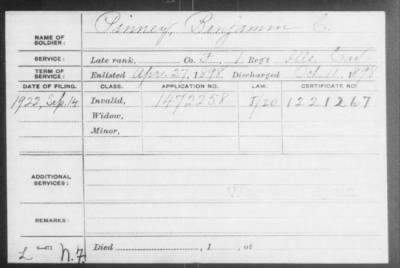 NAME OF SOLDIER: Pinney, Benjamin C.
SERVICE: Late rank, Co. F, 1 Reg't Ills. Cav.
TERM OF SERVICE: Enlisted Apr. 27, 1898 Discharged Oct. 11, 1898
DATE OF FILING. CLASS. APPLICATION NO. LAW. CERTIFICATE NO.
1922, Sep. 14 Invalid, 1472258 1221267
Widow,
Minor,
ADDITIONAL SERVICES:
REMARKS:
Died , 1 , at